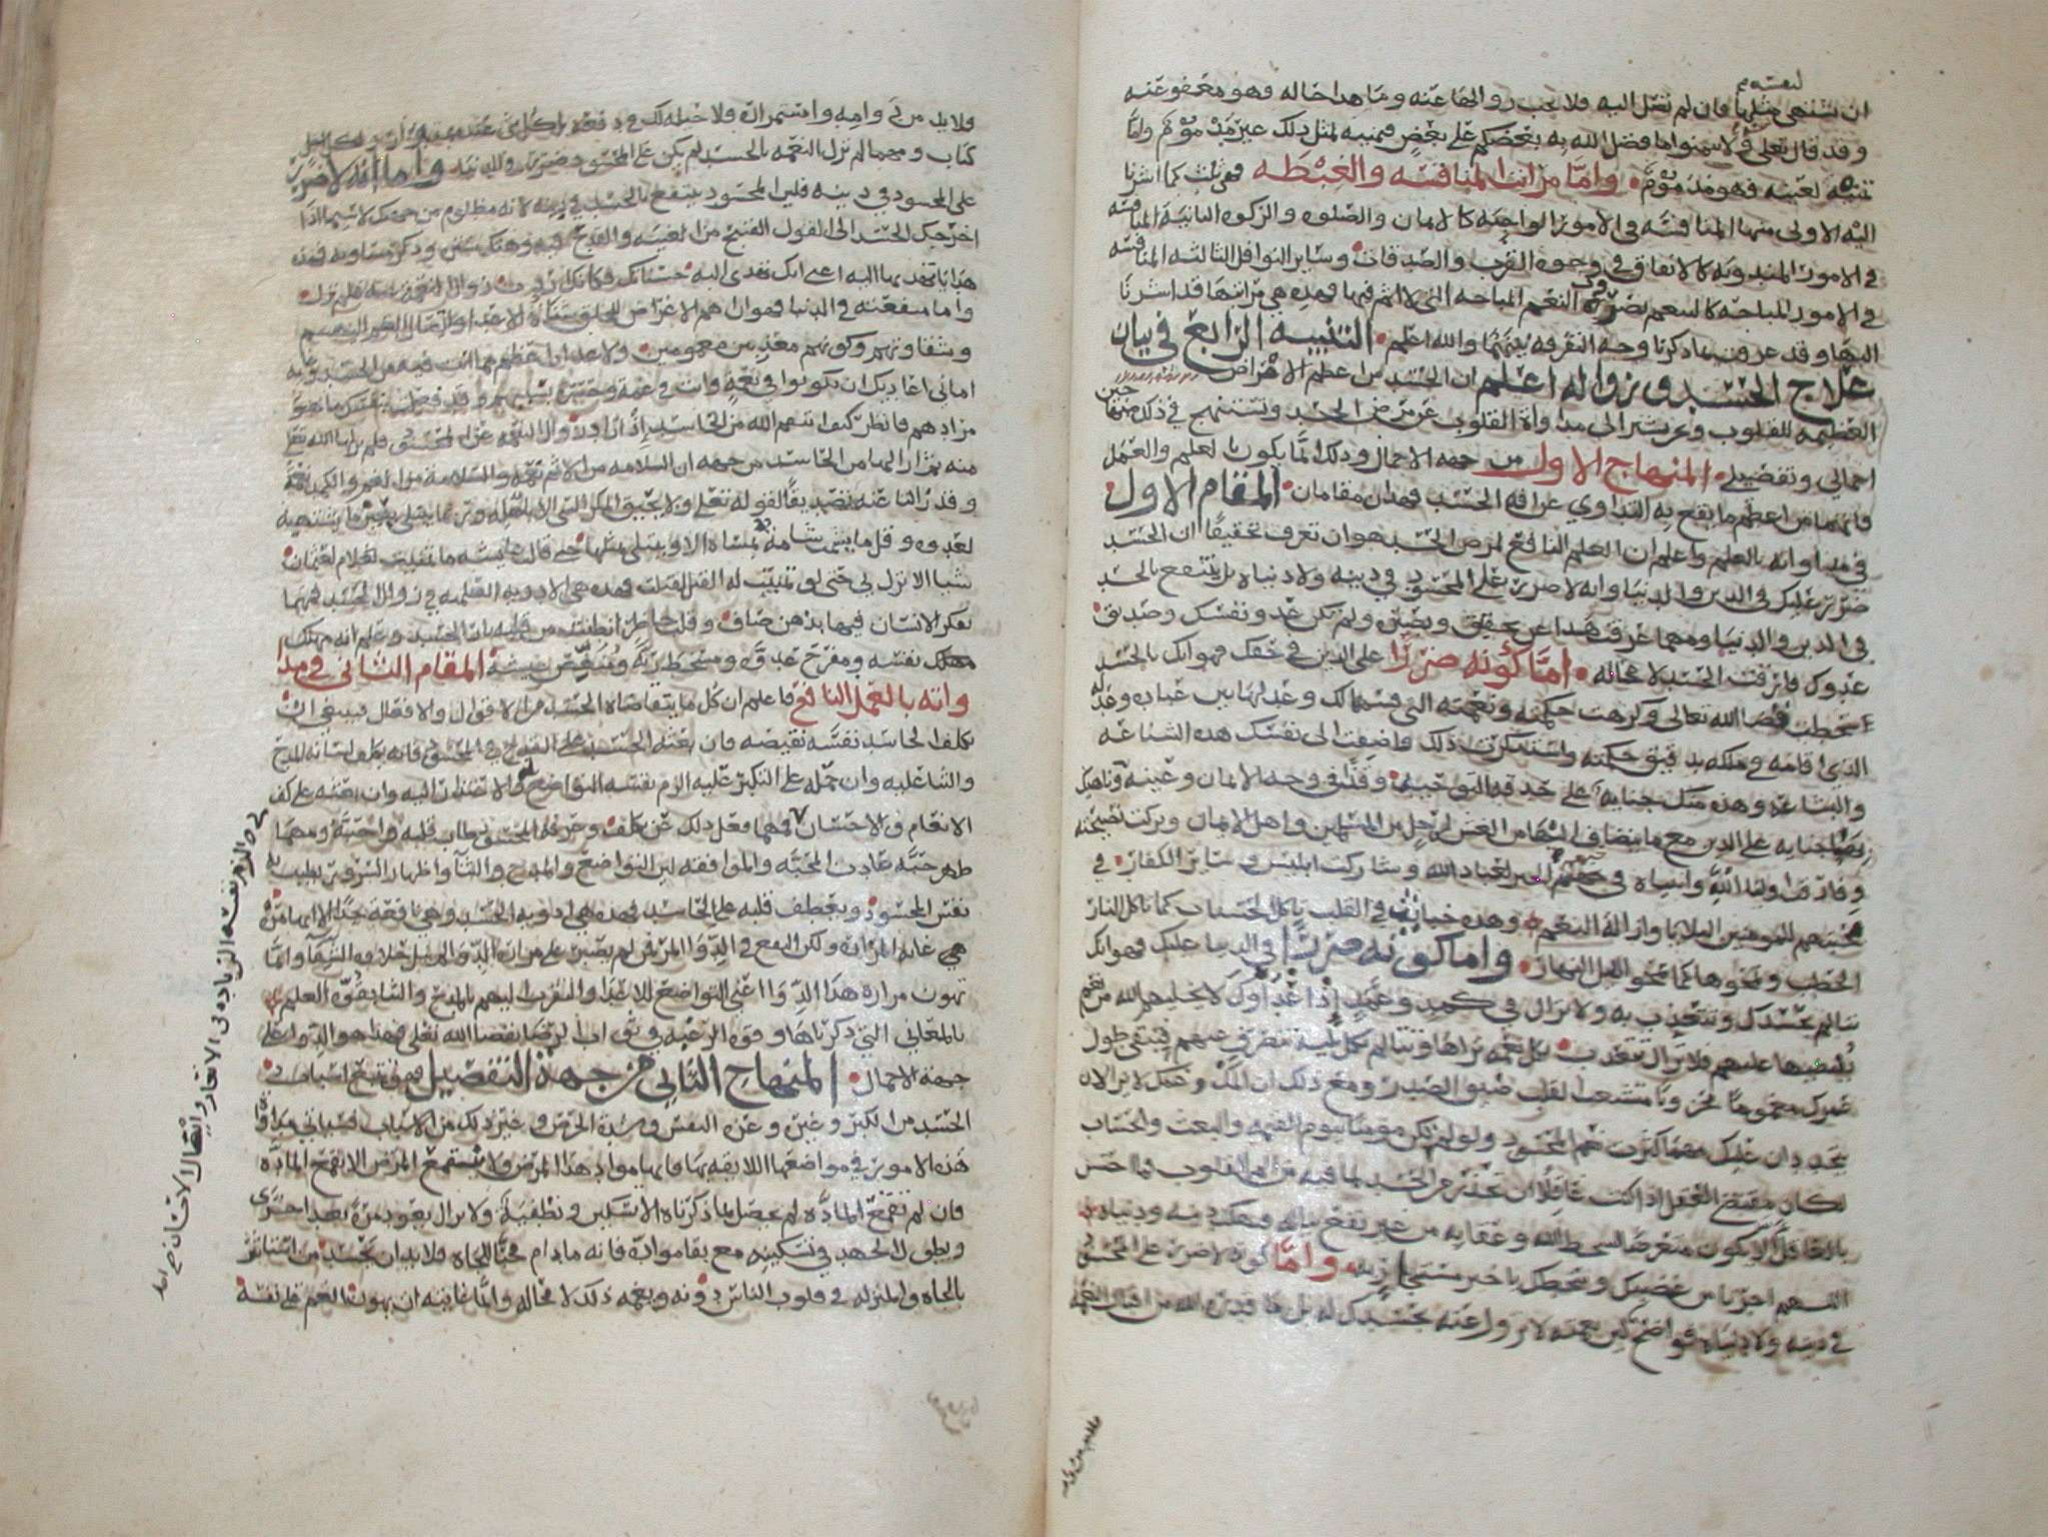 لنفسه
ان تشتهى مثلها فان لم تصل اليه فلا يحب زوالها عنه وما هذا حاله فهو معفو عنه
وقد قال تعلى ولا تتمنوا ما فضل الله به بعضكم على بعض فتمنيه لمثل ذلك غير مذموم واما
تمنيه لعينه فهو مذموم واما مراتب المنافسه والغبطه فهي ثلث كما اشرنا
اليه الاولى منها المنافسه في الامور الواجبه كالايمان والصلوه والزكوه الثانية المنافسه
في الامور المندوبه كالانفاق في وجوه القرب والصدقات وساير النوافل الثالثه المنافسه
في الامور المباحه كالتنعم بضروب النعم المباحه التي لا اثم فيها فهذه هي مراتبها قد اشرنا
اليها وقد عرفت بما ذكرنا وجه التفرقه بينهما والله اعلم التنبيه الرابع في بيان
علاج الحسد وزواله اعلم ان الحسد من اعظم الامراض
العظيمه للقلوب ونحن نشير الى مداواة القلوب عن مرض الحسد وننتهج في ذلك منهاجين
اجمالي وتفصيلي المنهاج الاول من جهه الاجمال وذلك انما يكون بالعلم والعمل
فانهما من اعظم ما يقع به التداوي عن افه الحسد فهذان مقامان المقام الاول
في مداواته بالعلم واعلم ان العلم النافع لمرض الحسد هو ان تعرف تحقيقا ان الحسد
ضرر عليك في الدين والدنيا وانه لا ضرر على المحسود في دينه ولا دنياه بل ينتفع بالحسد
في الدين والدنيا ومهما عرفت هذا عن تحقيق ويقين ولم تكن عدو نفسك وصديق
عدوك فارقت الحسد لا محاله اما كونه ضررا على الدين في حقك فهو انك بالحسد
سخطت قضا الله تعالى وكرهت حكمته ونعمته التي قسمها لك وعدلها بين عباده وعدله
الذي اقامه في ملكه بدقيق حكمته واستنكرت ذلك واضفت الى نفسك هذه الشناعه
والبشاعه وهذه منك جنايه على حدقه التوحيد وقذى في وجه الايمان وعينه وناهيك
بها جنايه على الدين مع ما ينضاف اليها من الغش لرجل من المسلمين واهل الايمان وتركت نصيحته
وفارقت اولياء الله وانبياه في حبهم الخير لعباد الله وشاركت ابليس وساير الكفار في
محبتهم للمومنين البلايا وازالة النعم وهذه خبايث في القلب ياكل الحسنات كما تاكل النار
الحطب وتمحوها كما تمحو الليل النهار واما كونه ضررا في الدنيا عليك فهو انك
تتالم بحسدك وتتعذب به ولا تزال في كمد وغم اذ اعداوك لا يخليهم الله من نعم
يفيضها عليهم فلا تزال تتعذب بكل نعمه تراها وتتالم بكل بلية تنصرف عنهم فيبقى طول
عمرك مغموما محزونا متشعب القلب ضيق الصدر ومع ذلك ان الهم وغمك لا يزالان
يتجددان عليك مهما كثرت نعم المحسود ولو لم تكن موقنا بيوم القيمه والبعث والحساب
لكان مقتضى العقل اذا كنت عاقلا ان تحذر من الحسد لما فيه من الم القلوب فما حسن
بالعاقل ان يكون متعرضا لسخط الله وعقابه من غير نفع يناله فهلك دينه ودنياه
اللهم اجرنا من غضبك وسخطك يا خير مستجار به واما كونه لا ضرر على المحسود
في دينه ولا دنياه فواضح لان نعمه لا تزول عنه بحسدك له بل ما قدره الله من اقبال ونعمه
فلا بد من دوامه واستمراره ولا حيله لك في دفعه
كتاب ومهما لم تزل النعمه بالحسد لم يكن على المحسود ضرر واما انه لا ضرر
على المحسود في دينه فلان المحسود ينتفع بالحسد في دينه لانه مظلوم من جهتك لا سيما اذا
اخرجك الحسد الى القول القبيح من الغيبه والقدح فيه وهتك ستره وذكر مساويه فهذه
هدايا تهديها اليه اعني انك تهدي اليه حسناتك
واما منفعته في الدنيا فهو ان اهم الاغراض للخلق
وشقاوتهم وكونهم معذبين مغمومين ولا عذاب اعظم مما انت فيه من الحسد وغايه
اماني اعاديك ان يكونوا في نعمه وانت في غم وحسره بسببهم وقد فعلت بنفسك ما هو
مرادهم فانظر كيف انتقم الله من الحاسد اذ اراد زوال النعمه عن المحسود فلم يزلها الله
وقد راينا عنه تصديقا لقوله تعلى ولا يحيق المكر السي الا باهله وربما يبتلى بعين ما يشتهيه
لعدوه وقل ما يشمت شامت بمساة الا ويبتلى بمثلها حتى قالت عايشه ما تمنيت لعثمان
شيا الا نزل بي حتى لو تمنيت له القتل لقتلت فهذه هي الادويه العلميه في زوال الحسد فمهما
تفكر الانسان فيها بذهن صاف وقلب حاضر انطفت من قلبه نار الحسد وعلم انه مهلك
نفسه ومفرح عدوه ومسخط ربه ومنغص عيشه المقام الثاني في مدا
واته بالعمل النافع فاعلم ان كل ما يتقاضاه الحسد من الاقوال والافعال فينبغي ان
يكلف الحاسد نفسه نقيضه فان بعثه الحسد على القدح في المحسود فانه يكلف لسانه المدح
والثنا عليه وان حمله على التكبر عليه الزم نفسه التواضع له والاعتذار اليه وان بعثه على كف
الانعام والاحسان فمهما فعل ذلك عن تكلف وعرفه المحسود طاب قلبه واحبه ومهما
ظهر حبه عادت المحبه والموافقه لان التواضع والمدح والثنا واظهار السرور يطيب به
نفس المحسود ويعطف قلبه على الحاسد فهذه هي ادويه الحسد وهي نافعه جدا الا انها مره
تهون مرارة هذا الدوا اعني التواضع للاعدا والتقرب اليهم بالمدح والثنا بقوة العلم
بالمعاني التي ذكرناها وقوه الرغبه في ثواب الرضا بقضا الله تعلى فهذا هو الدوا على
جهة الاجمال المنهاج الثاني من جهة التفصيل فهو تتبع اسباب
الحسد من الكبر وغيره وعزه النفس وشدة الحرص وغير ذلك من الاسباب فسياتي مداواة
هذه الامور في مواضعها اللايقه بها فانها مواد هذا المرض ولا ينقمع المرض الا بقمع الماده
فان لم تنقمع المادة لم يحصل بما ذكرناه الا تسكين وتطفية ولا يزال يعود مرة بعد اخرى
ويطول الجهد في تسكينه مع بقا مواده فانه ما دام محبا للجاه فلا بد ان يحسد من استاثر
بالجاه والمنزله في قلوب الناس دونه ويغمه ذلك لا محاله وانما غايته ان يهون الغم على نفسه
الزم نفسه الزياده في الانعام وايصال الاحسان صح اصل